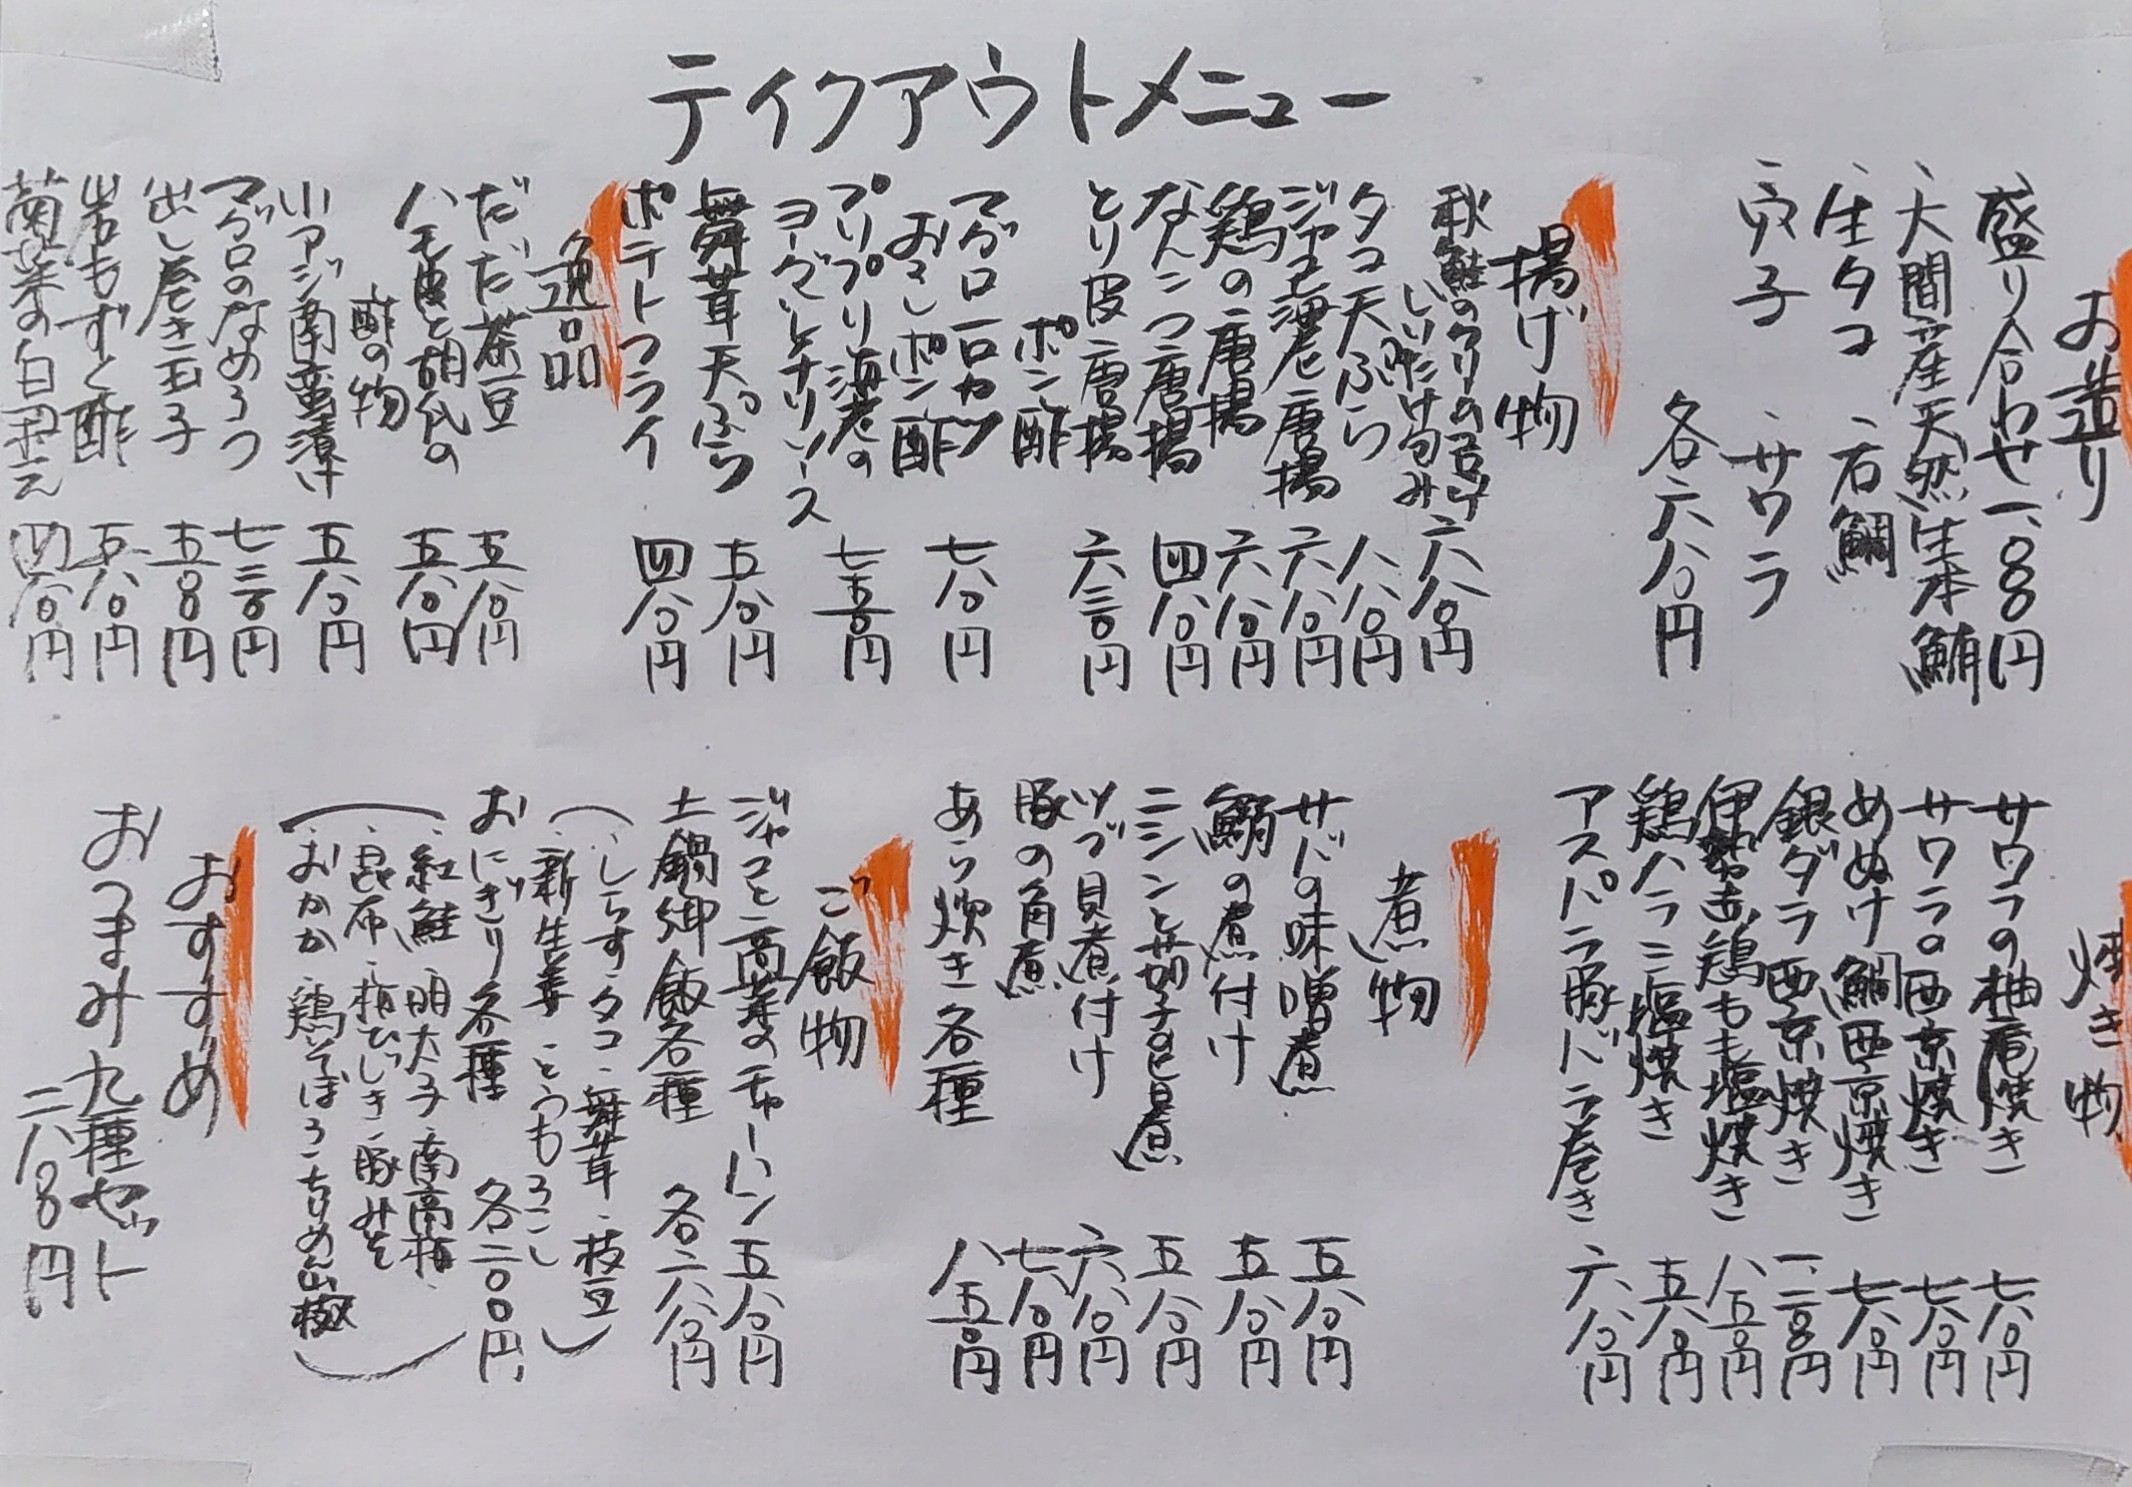 テイクアウトメニュー
お造り
盛り合わせ 一、八〇〇円
、大間産天然生本鮪
、生タコ 、石鯛
、穴子 、サワラ
各六八〇円
揚げ物
秋鮭のクリーム
しいたけ包み 六八〇円
タコ天ぷら 八八〇円
唐揚 六八〇円
鶏の唐揚 六八〇円
なんこつ唐揚 四八〇円
とり皮唐揚
ポン酢 六三〇円
マグロ一口カツ
おろしポン酢 七八〇円
プリプリ海老の
ヨーグルトチリソース 七五〇円
舞茸天ぷら 五八〇円
ポテトフライ 四八〇円
逸品
だだ茶豆 五八〇円
ハモ皮と胡瓜の
酢の物 五八〇円
小アジ南蛮漬け 五八〇円
マグロのなめろう 七三〇円
出し巻き玉子 五五〇円
岩もずく酢 五八〇円
菊菜の白和え 四八〇円
焼き物
サワラの柚庵焼き 七八〇円
サワラの西京焼き 七八〇円
めぬけ鯛西京焼き 七八〇円
銀ダラ西京焼き 一、二〇〇円
伊勢赤鶏もも塩焼き 八五〇円
鶏ハラミ塩焼き 五八〇円
アスパラ豚バラ巻き 六八〇円
煮物
サバの味噌煮 五八〇円
鰯の煮付け 五八〇円
ニシンと茄子の煮 五八〇円
ツブ貝煮付け 六八〇円
豚の角煮 七八〇円
あら炊き各種 八五〇円
ご飯物
ジャコと高菜のチャーハン 五八〇円
土鍋御飯各種 各二八八〇円
（、しらす、タコ、舞茸、枝豆
、新生姜 とうもろこし）
おにぎり各種 各二〇〇円
（、紅鮭 明太子、南高梅、
、昆布、梅ひじき、豚みそ
、おかか、鶏そぼろ、ちりめん山椒）
おすすめ
おつまみ九種セット
二、八〇〇円